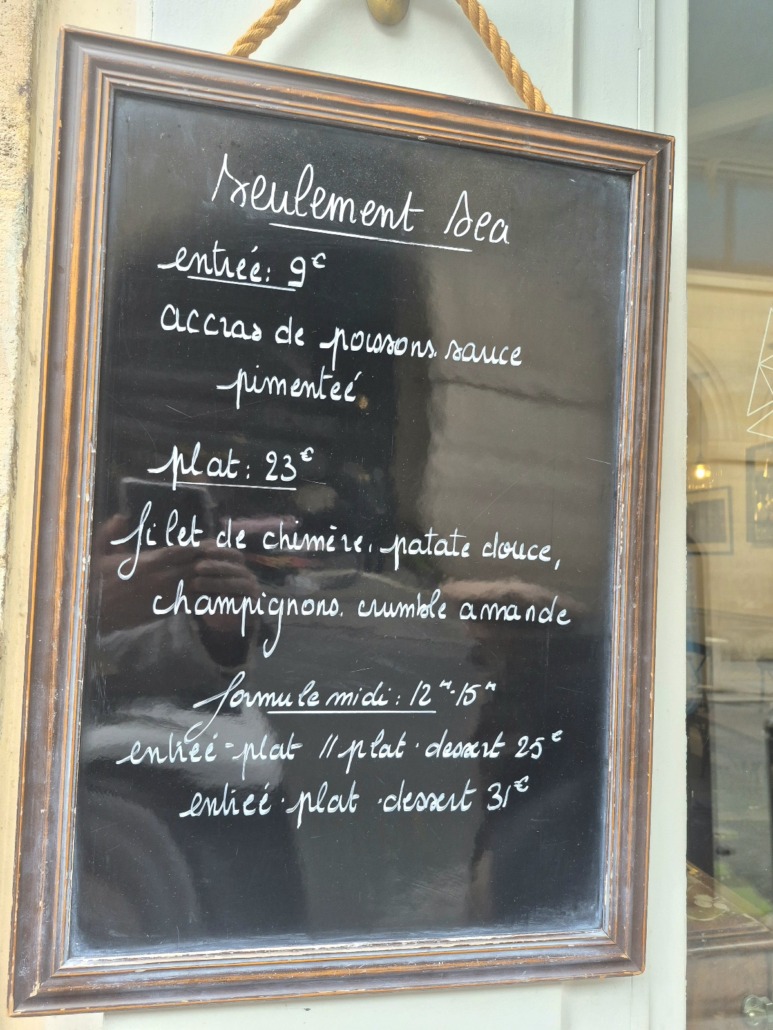 seulement sea
entrée: 9€
accras de poissons. sauce
pimenteé
plat: 23€
filet de chimère. patate douce,
champignons. crumble amande
formule midi: 12H-15H
entreé-plat // plat·dessert 25€
entreé·plat·dessert 31€